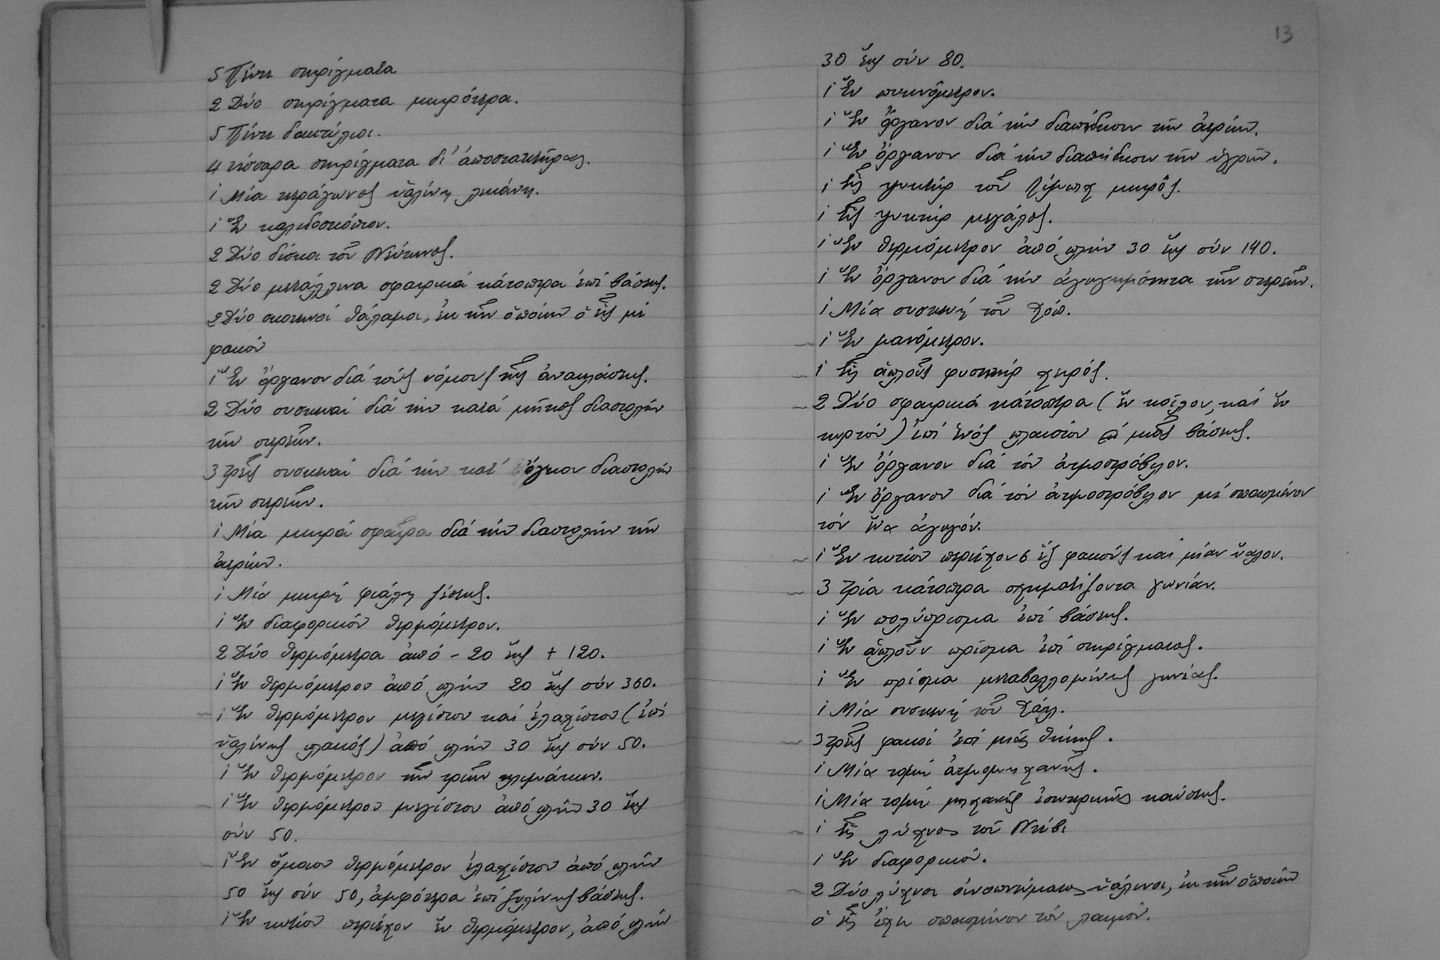 5 Πέντε στηρίγματα
2 Δύο στηρίγματα μικρότερα.
5 Πέντε δακτύλιοι.
4 τέσσαρα στηρίγματα δι' ἀποστακτῆρας.
1 Μία τετράγωνος ὑαλίνη λεκάνη.
1 Ἓν καλειδοσκόπιον.
2 Δύο δίσκοι τοῦ Νεύτωνος.
2 Δύο μετάλλινα σφαιρικά κάτοπτρα ἐπί βάσεως.
2 Δύο σκοτεινοί θάλαμοι, ἐκ τῶν ὁποίων ὁ εἷς μέ
φακόν
1 Ἓν ὄργανον διά τούς νόμους τῆς ἀνακλάσεως.
2 Δύο συσκευαί διά τήν κατά μῆκος διαστολήν
τῶν στερεῶν.
3 Τρεῖς συσκευαί διά τήν κατ' ὄγκον διαστολήν
τῶν στερεῶν.
1 Μία μικρά σφαῖρα διά τήν διαστολήν τῶν
ἀερίων.
1 Μία μικρή φιάλη ζέσεως.
1 Ἓν διαφορικόν θερμόμετρον.
2 Δύο θερμόμετρα ἀπό - 20 ἕως + 120.
1 Ἓν θερμόμετρον ἀπό πλήν 20 ἕως σύν 360.
1 Ἓν θερμόμετρον μεγίστου καί ἐλαχίστου (ἐπί
ὑαλίνης πλακός) ἀπό πλήν 30 ἕως σύν 50.
1 Ἓν θερμόμετρον τῶν τριῶν κλιμάκων.
1 Ἓν θερμόμετρον μεγίστου ἀπό πλήν 30 ἕως
σύν 50.
1 Ἓν ὅμοιον θερμόμετρον ἐλαχίστου ἀπό πλήν
50 ἕως σύν 50, ἀμφότερα ἐπί ξυλίνης βάσεως.
1 Ἓν κυτίον περιέχον ἓν θερμόμετρον, ἀπό πλήν
13
30 ἕως σύν 80.
1 Ἓν πυκνόμετρον.
1 Ἓν ὄργανον διά τήν διαπίδυσιν τῶν ἀερίων.
1 Ἓν ὄργανον διά τήν διαπίδυσιν τῶν ὑγρῶν.
1 Εἷς ψυκτήρ τοῦ Λίμπιχ μικρός.
1 Εἷς ψυκτήρ μεγάλος.
1 Ἓν θερμόμετρον ἀπό πλήν 30 ἕως σύν 140.
1 Ἓν ὄργανον διά τήν ἀγωγιμότητα τῶν στερεῶν.
1 Μία συσκευή τοῦ Χόπ.
1 Ἓν μανόμετρον.
1 Εἷς ἁπλοῦς φυσητήρ χειρός.
2 Δύο σφαιρικά κάτοπτρα (ἓν κοῖλον, καί ἓν
κυρτόν) ἐπί ἑνός πλαισίου μιᾶς βάσεως.
1 Ἓν ὄργανον διά τόν ἀτμοστρόβιλον.
1 Ἓν ὄργανον διά τόν ἀτμοστρόβιλον μέ σπασμένον
τόν ἕνα ἀγωγόν.
1 Ἓν κυτίον περιέχον 6 ἕξ φακούς καί μίαν ὕαλον.
3 Τρία κάτοπτρα σχηματίζοντα γωνίαν.
1 Ἓν πολύπρισμα ἐπί βάσεως.
1 Ἓν ἁπλοῦν πρίσμα ἐπί στηρίγματος.
1 Ἓν πρίσμα μεταβαλλομένης γωνίας.
1 Μία συσκευή τοῦ Χάλ.
3 Τρεῖς φακοί ἐπί μιᾶς θήκης.
1 Μία τομή ἀτμομηχανῆς.
1 Μία τομή μηχανῆς ἐσωτερικῆς καύσεως.
1 Εἷς λύχνος τοῦ Ντέβι
1 Ἓν διαφορικόν.
2 Δύο λύχνοι οἰνοπνεύματος ὑάλινοι, ἐκ τῶν ὁποίων
ὁ εἷς ἔχει σπασμένον τόν λαιμόν.